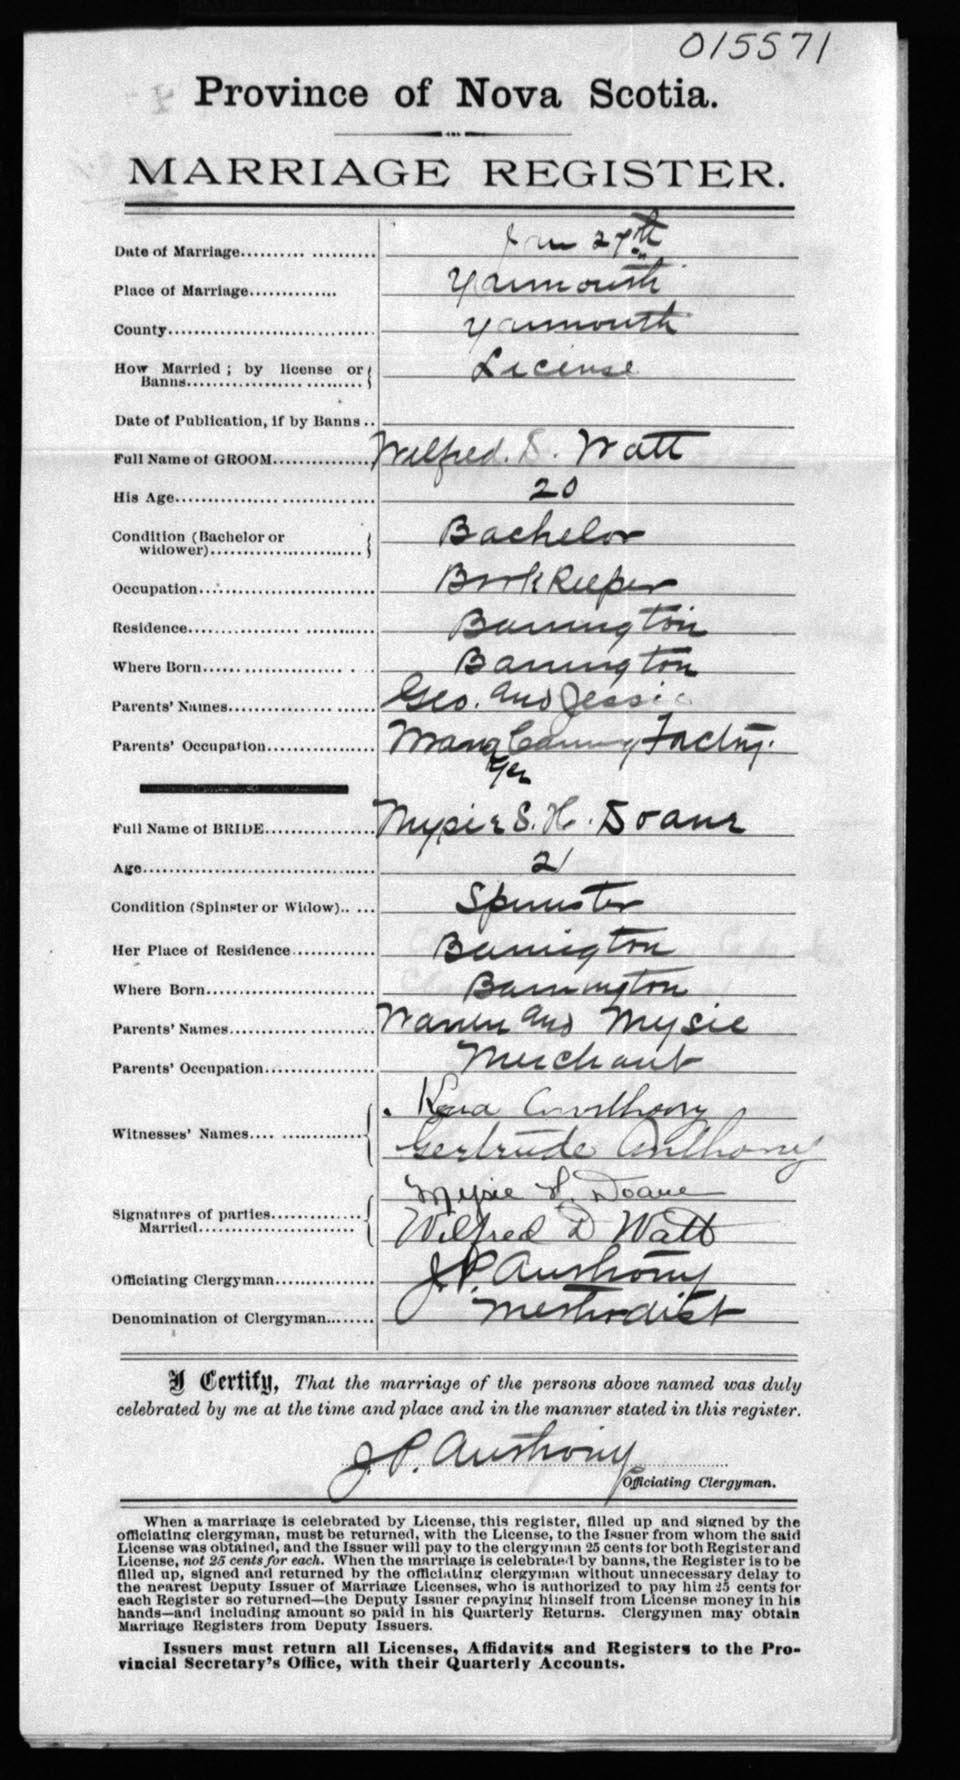 015571
Province of Nova Scotia.
MARRIAGE REGISTER.
Date of Marriage.......... ........... Jan 27th
Place of Marriage.............. Yarmouth
County................................. Yarmouth
How Married ; by license or License
Banns.................. ..........
Date of Publication, if by Banns ..
Full Name of GROOM............... Wilfred. D. Watt
His Age.................. .............. 20
Condition (Bachelor or Bachelor
widower)........................
Occupation............................. Book Keeper
Residence................ ........... Barrington
Where Born...... ............. . ... Barrington
Parents' Names............. ......... Geo. and Jessie
Parents' Occupation................. Manag Canning Factry.
ger
Full Name of BRIDE................. Mysie S. H. Doane
Age..................................... 21
Condition (Spinster or Widow).. ... Spinster
Her Place of Residence............. Barrington
Where Born........................... Barrington
Parents' Names............ .......... Warren and Mysie
Parents' Occupation................. Merchant
Anthony
Witnesses' Names.... ..............
Gertrude Anthony
Mysie H. Doane
Signatures of parties..............
Married....................... Wilfred D Watt
Officiating Clergyman............... J.P. Anthony
Denomination of Clergyman........ Methodist
I Certify, That the marriage of the persons above named was duly
celebrated by me at the time and place and in the manner stated in this register.
J. P. Anthony
Officiating Clergyman.
When a marriage is celebrated by License, this register, filled up and signed by the
officiating clergyman, must be returned, with the License, to the Issuer from whom the said
License was obtained, and the Issuer will pay to the clergyman 25 cents for both Register and
License, not 25 cents for each. When the marriage is celebrated by banns, the Register is to be
filled up, signed and returned by the officiating clergyman without unnecessary delay to
the nearest Deputy Issuer of Marriage Licenses, who is authorized to pay him 25 cents for
each Register so returned—the Deputy Issuer repaying himself from License money in his
hands—and including amount so paid in his Quarterly Returns. Clergymen may obtain
Marriage Registers from Deputy Issuers.
Issuers must return all Licenses, Affidavits and Registers to the Pro-
vincial Secretary's Office, with their Quarterly Accounts.